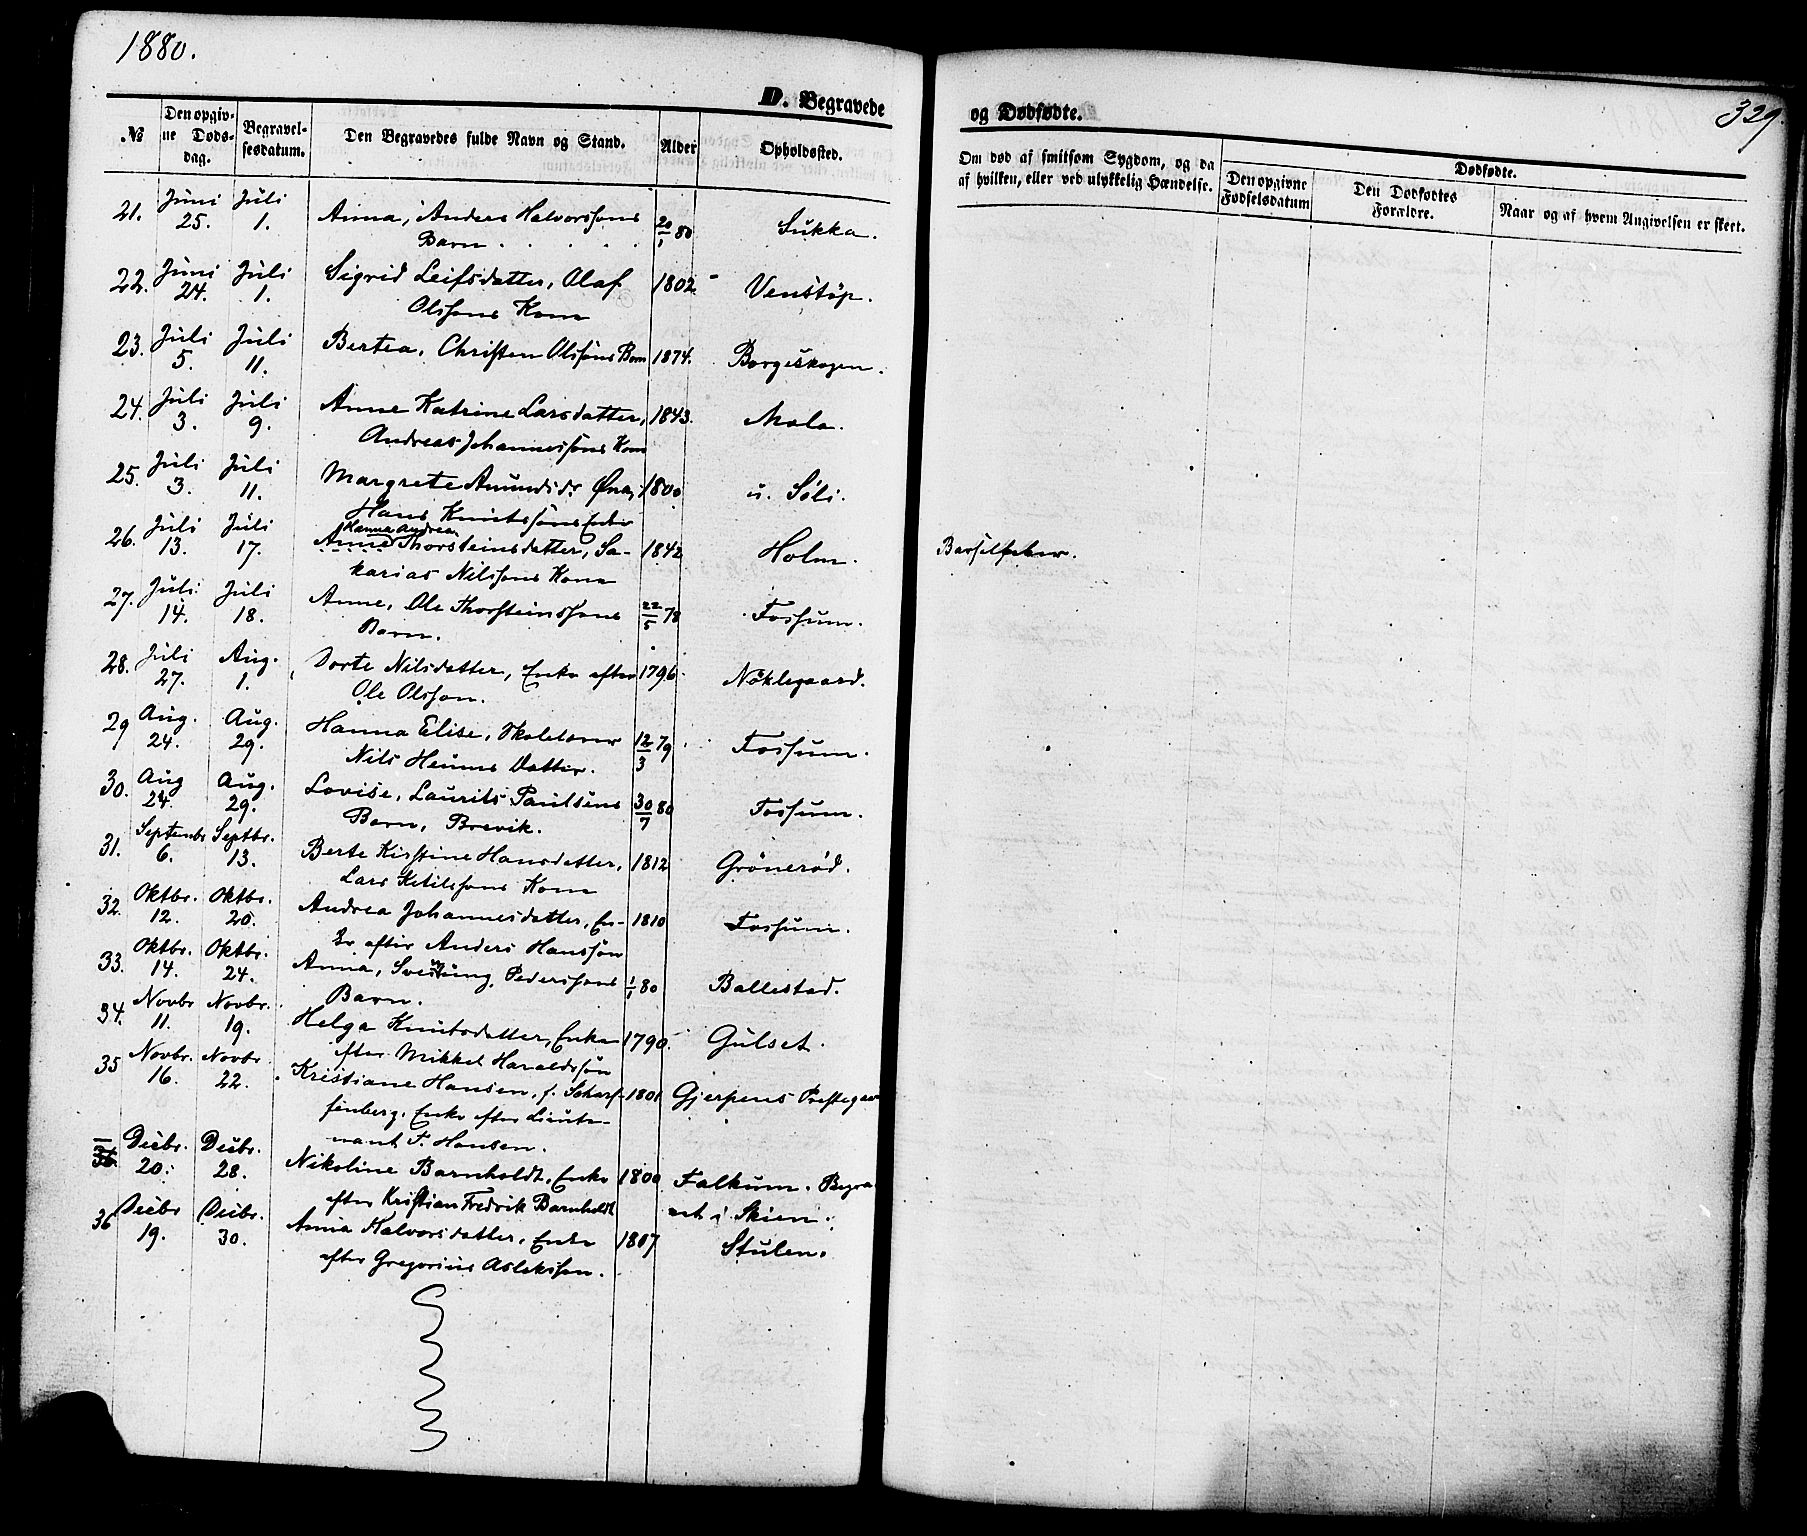 1880.
329.
D. Begravede
og Dødfødte.
№
Den opgiv-
ne Døds-
dag.
Begravel-
sesdatum.
Den Begravedes fulde Navn og Stand.
Alder
Opholdssted.
Om død af smitsom Sygdom, og da
af hvilken, eller ved ulykkelig Hændelse.
Dødfødte.
Den opgivne
Fødselsdatum
Den Dødfødtes
Forældre.
Naar og af hvem Angivelsen er skeet.
21. Juni 25. Juli 1. Anna, Anders Halvorssøns 20/1 80 Sukka.
Barn
22. Juni 24. Juli 1. Sigrid Leifsdatter, Olaf 1802. Venstøp.
Olssøns Kone
23. Juli 5. Juli 11. Bertea, Christen Olssøns Barn 1874. Borgeskogen.
24. Juli 3. Juli 9. Anne Katrine Larsdatter, 1843. Mæla.
Andreas Johannessøns Kone
25. Juli 3. Juli 11. Margrete Amundsdr. 1800 u. Søli.
Hans Knutssøns Enke
Hanna Andrea
26. Juli 13. Juli 17. Anne Thorsteinsdatter, Sa- 1842 Holm. Barselfeber.
karias Nilssøns Kone
27. Juli 14. Juli 18. Anne, Ole Thorsteinssøns 22/5 78 Fossum.
Barn.
28. Juli 27. Aug. 1. Dorte Nilsdatter, Enke efter 1796. Nøklegaard.
Ole Olsson.
29 Aug. 24. Aug. 29. Hanna Elise, Skolelærer 12/3 79 Fossum.
Nils Heums Datter.
30. Aug 24. Aug. 29. Lovise, Laurits Paulsens 30/7 80 Fossum.
Barn, Brevik.
31. Septembr 6. Septbr. 13. Berte Kirstine Hansdatter, 1812 Grønerød.
Lars Ketilssøns Kone
32. Oktbr. 12. Oktbr. 20. Andrea Johannesdatter, En- 1810 Fossum.
ke efter Anders Hanssøn
33. Oktbr. 14. Oktbr. 24. Anna, Sveinung Pederssøns 1/1 80 Ballestad.
Barn.
34. Novbr 11. Novbr. 19. Helga Knutsdatter, Enke 1790. Gulset.
efter Mikkel Haraldssøn
35 Novbr. 16. Novbr. 22. Kristiane Hansen, f. Scharf- 1801 Gjerpens Prestegaard
fenberg, Enke efter Lieute-
nant F. Hansen.
36. Decbr. 20. Decbr. 28. Nikoline Barnholdt, Enke 1800 Falkum. Begra-
efter Kristian Fredrik Barnholdt vet i Skien.
36 Decbr 19. Decbr. 30. Anna Halvorsdatter, Enke 1807 Stulen.
efter Gregorius Aslakssøn.